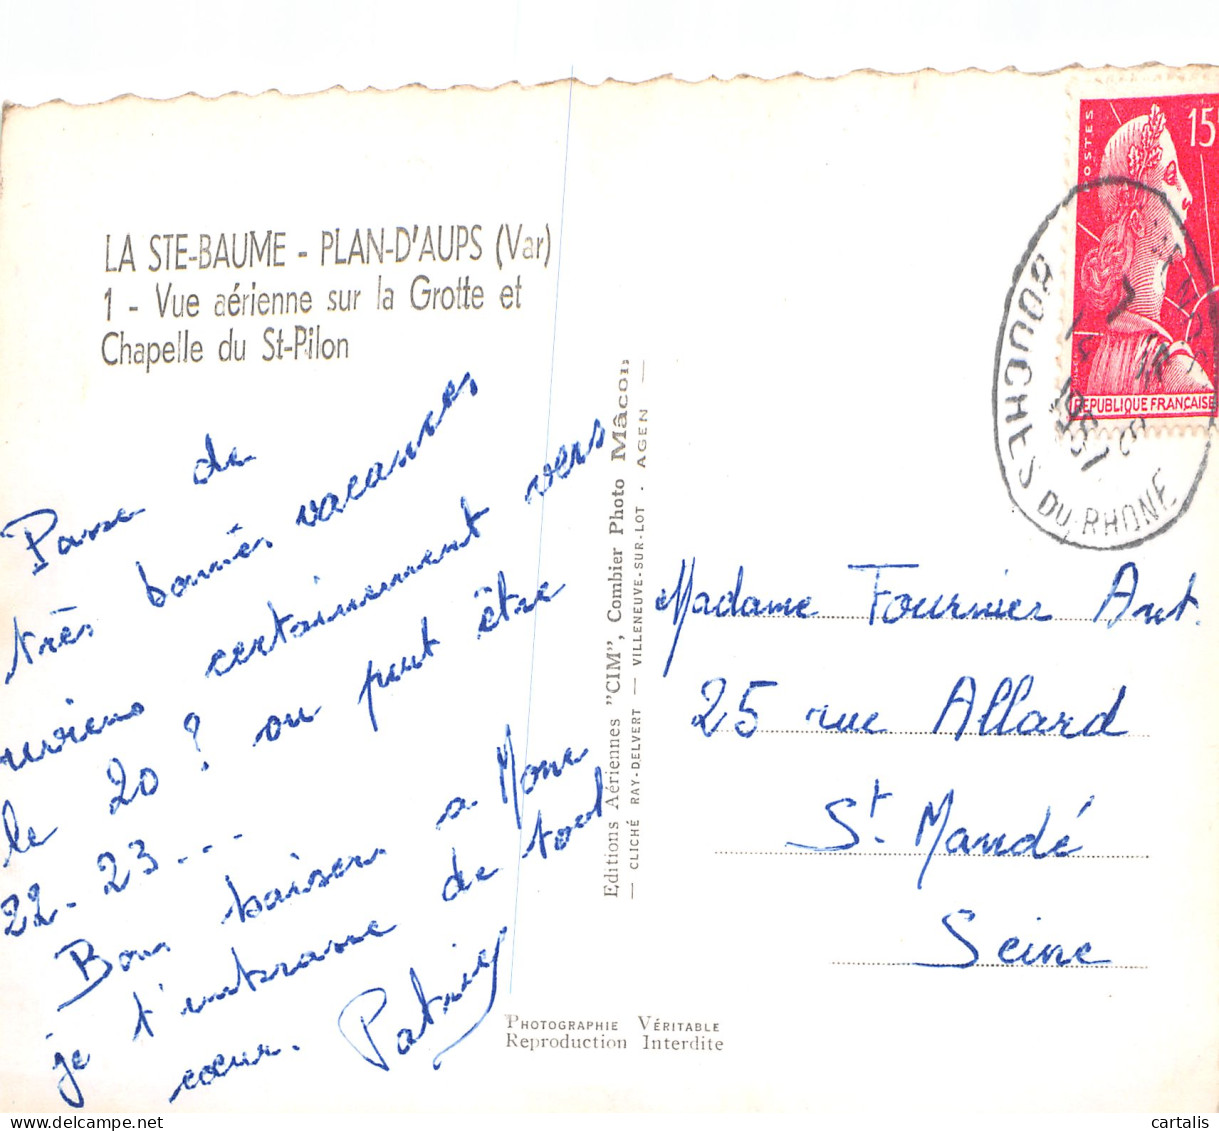 LA STE-BAUME - PLAN-D'AUPS (Var)
1 - Vue aérienne sur la Grotte et
Chapelle du St-Pilon
Passe de
très bonnes vacances
reviens certainement vers
le 20 ? ou peut être
22 - 23 ...
Bons baisers à
je t'embrasse de tout
cœur.
Editions Aériennes "CIM", Combier Photo Mâcon
— CLICHÉ RAY-DELVERT — VILLENEUVE-SUR-LOT - AGEN —
PHOTOGRAPHIE VÉRITABLE
Reproduction Interdite
POSTES
15
REPUBLIQUE FRANÇAISE
BOUCHES DU RHONE
Madame Fournier Ant.
25 rue Allard
St. Mandé
Seine
cartalis